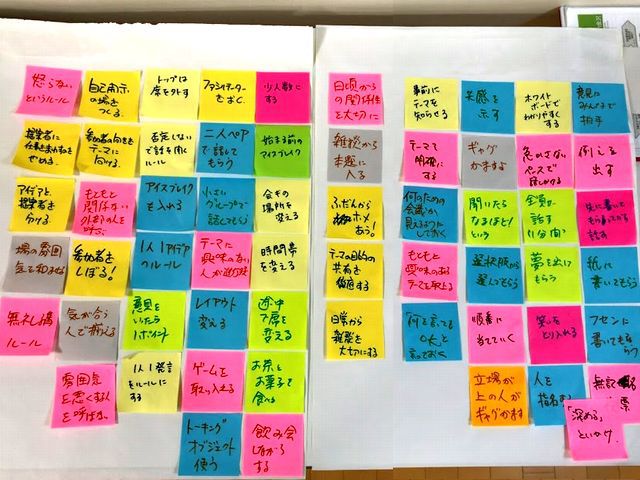 怒らない
というルール
自己開示
の場を
つくる。
トップは
席を外す
ファシリテーター
をおく
少人数に
する
提案者に
仕事をおしつけるのを
やめる。
参加者の向きを
テーマに
向ける。
否定しない
で話を聞く
ルール
二人ペア
で話して
もらう
始まる前の
アイスブレイク
アイデアと
提案者を
分ける
もともと
関係ない
外部の人を
呼ぶ
アイスブレイク
を入れる
小さい
グループで
話してもらう
会議の
場所を
変える
場の雰囲
気を和ませる
参加者を
しぼる!
1人1アイデア
のルール
テーマに
興味のな
い人が進行役
時間帯
を変える
無礼講
ルール
気が合う
人で揃える
意見を
いったら
1ポイント
レイアウト
変える
途中で
席を
変える
雰囲気
を悪くする人
を呼ばない
1人1発言
をルールに
する
ゲームを
取り入れる
お茶と
お菓子を
食べる
トーキング
オブジェクト
使う
飲み会
しながら
する
日頃から
の関係性
を大切に
事前に
テーマを
知らせる
共感を
示す
ホワイト
ボードで
わかりやすく
する
意見に
みんなで
拍手
雑談から
本題に
入る
テーマを
明確に
する
ギャグ
かますよ
急がさない
ペースで
例え
出す
ふだんから
ホメ
あう!
何のための
会議か
見えるようにしておく
聞いたら
なるほど!
という
全員が
話す
(1分間)
先に書いて
もらってから
話す
テーマの目的の
共有を
徹底する
もともと
興味のある
テーマを取り上る
選択肢から
選んでもらう
夢を出して
もらう
紙に
書いてもらう
日常から
雑談を
大切にする
何を言っても
OKと
言っておく
順番に
当てていく
笑いを
とり入れる
フセンに
書いてもらう
立場が
上の人が
ギャグかます
人を
指名する
無記
票
「深める」
といかけ